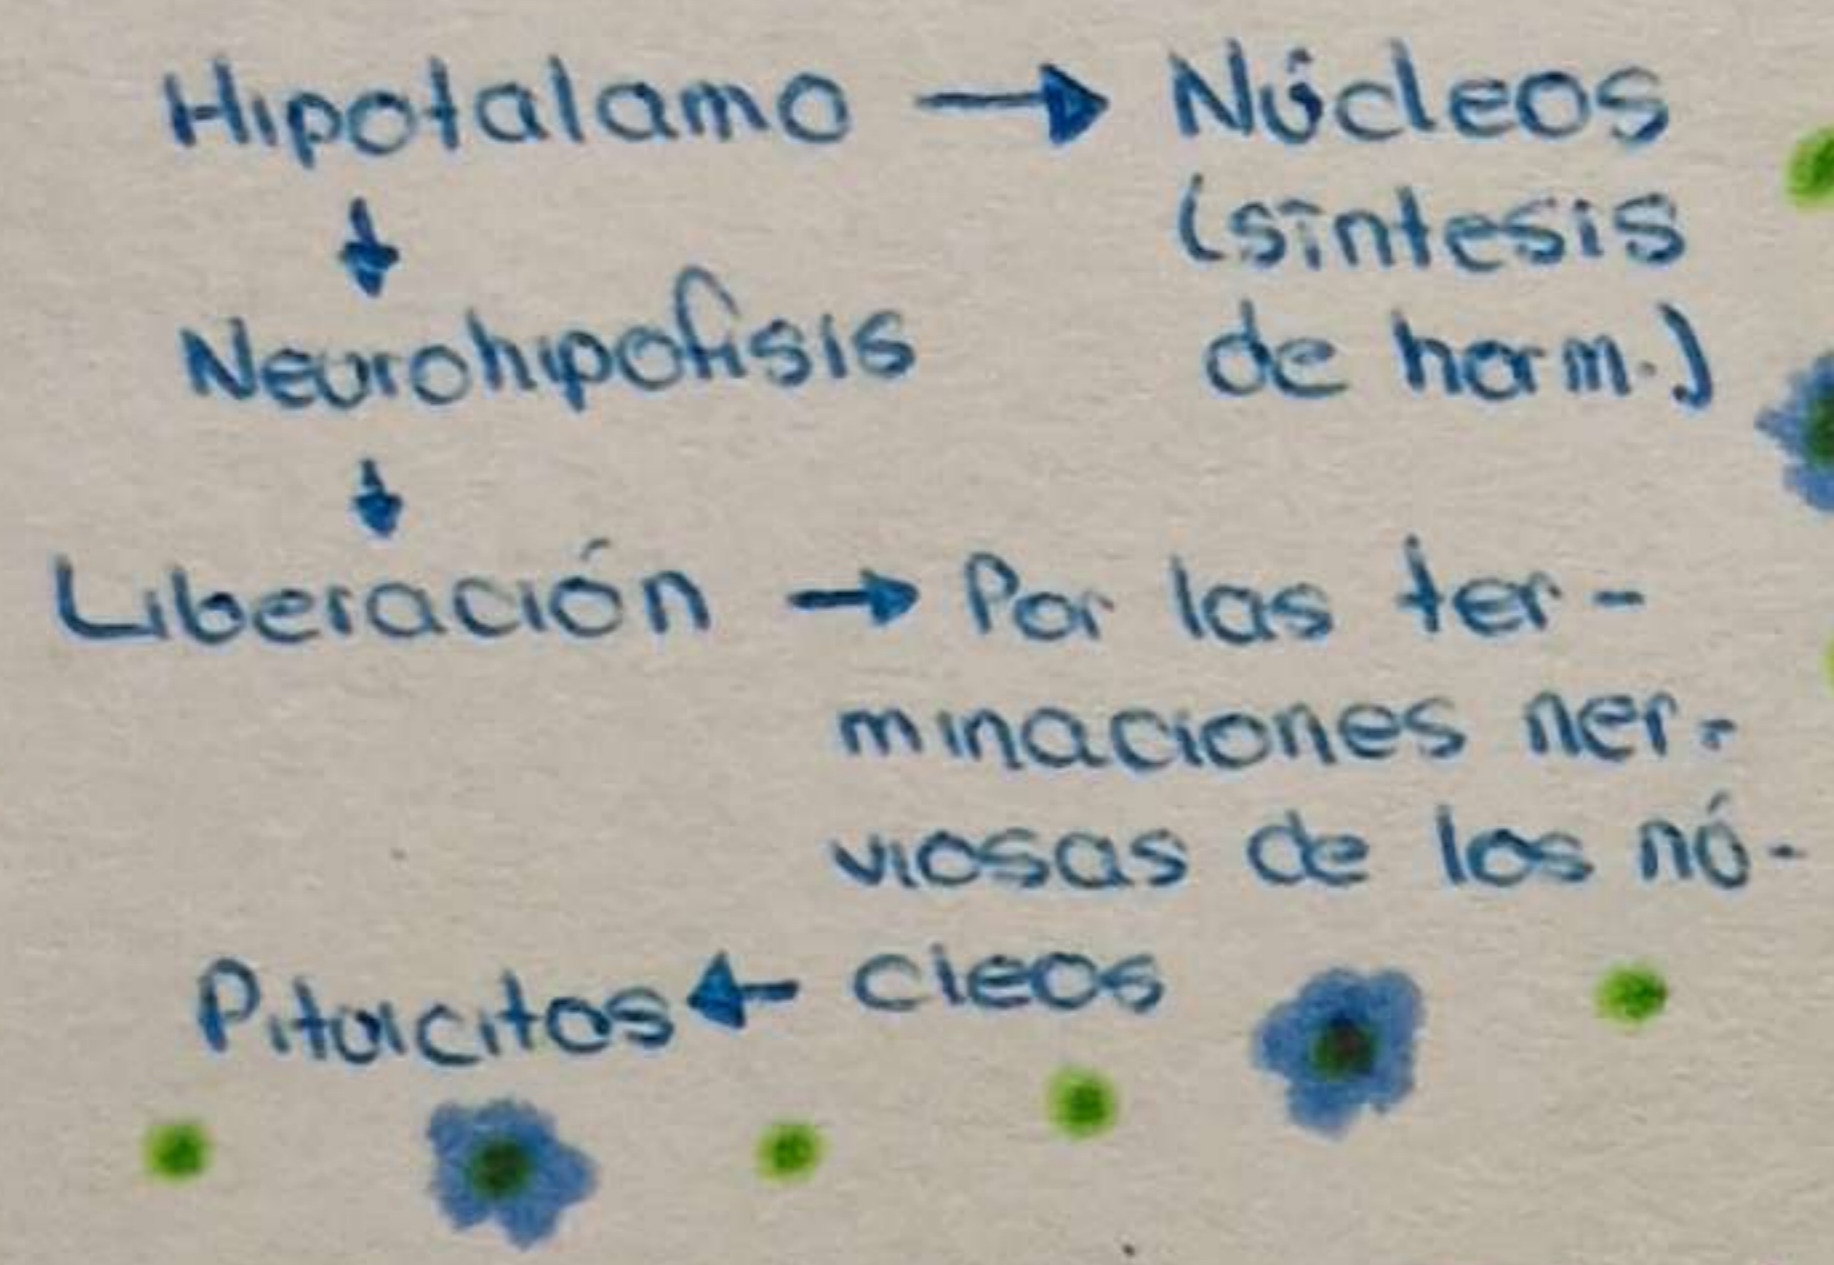 Hipotalamo → Núcleos
(síntesis
de horm.)
↓
Neurohipofisis
↓
Liberación → Por las ter-
minaciones ner-
viosas de los nú-
cleos
Pituicitos ←